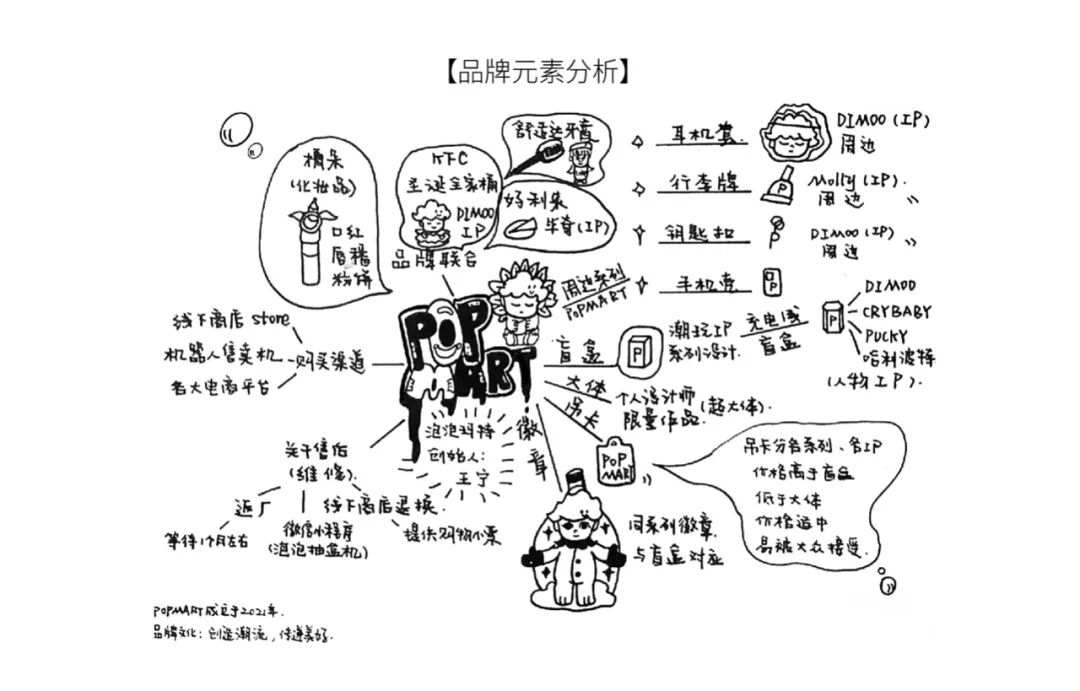 【品牌元素分析】
橘朵
(化妆品)
口红
唇釉
粉饼
KFC
圣诞全家桶
DIMOO
IP
舒适达牙膏
好利来
牛奇(IP)
品牌联合
周边系列
POPMART
耳机套
DIMOO(IP)
周边
行李牌
Molly(IP).
周边
钥匙扣
DIMOO(IP)
周边
手机壳
P
POP
MART
线下商店 store
机器人售卖机
各大电商平台
购买渠道
盲盒
P
潮玩IP
系列设计.
充电线
盲盒
P
DIMOO
CRYBABY
PUCKY
哈利波特
(人物IP).
大体
个人设计师
限量作品.
(超大体).
吊卡
POP
MART
吊卡分各系列、各IP
价格高于盲盒
低于大体
价格适中
易被大众接受.
徽章
同系列徽章.
与盲盒对应
泡泡玛特
创始人:
王宁
关于售后
(维修).
返厂
等待1个月左右
微信小程序
(泡泡抽盒机)
线下商店退换.
提供购物小票
POPMART成立于2021年.
品牌文化:创造潮流,传递美好.